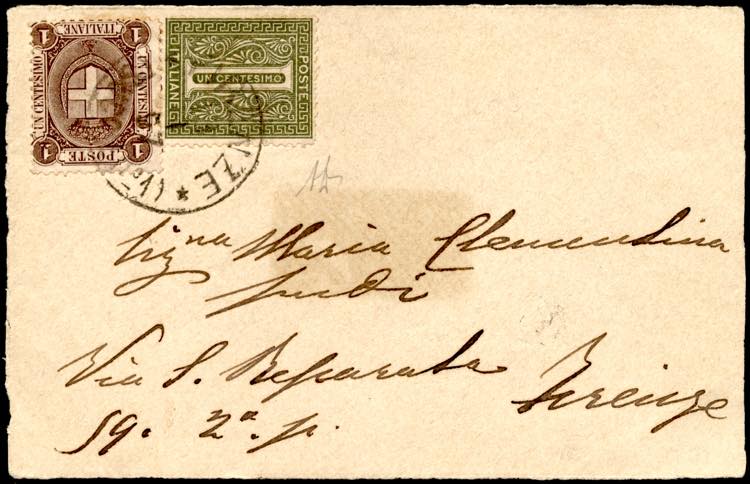 1 POSTE 1
UN CENTESIMO
UN CENTESIMO
1 ITALIANE 1
POSTE
UN CENTESIMO
ITALIANE
Sig.na Maria Clementina
Via S. Reparata Firenze
59. 2a. p.